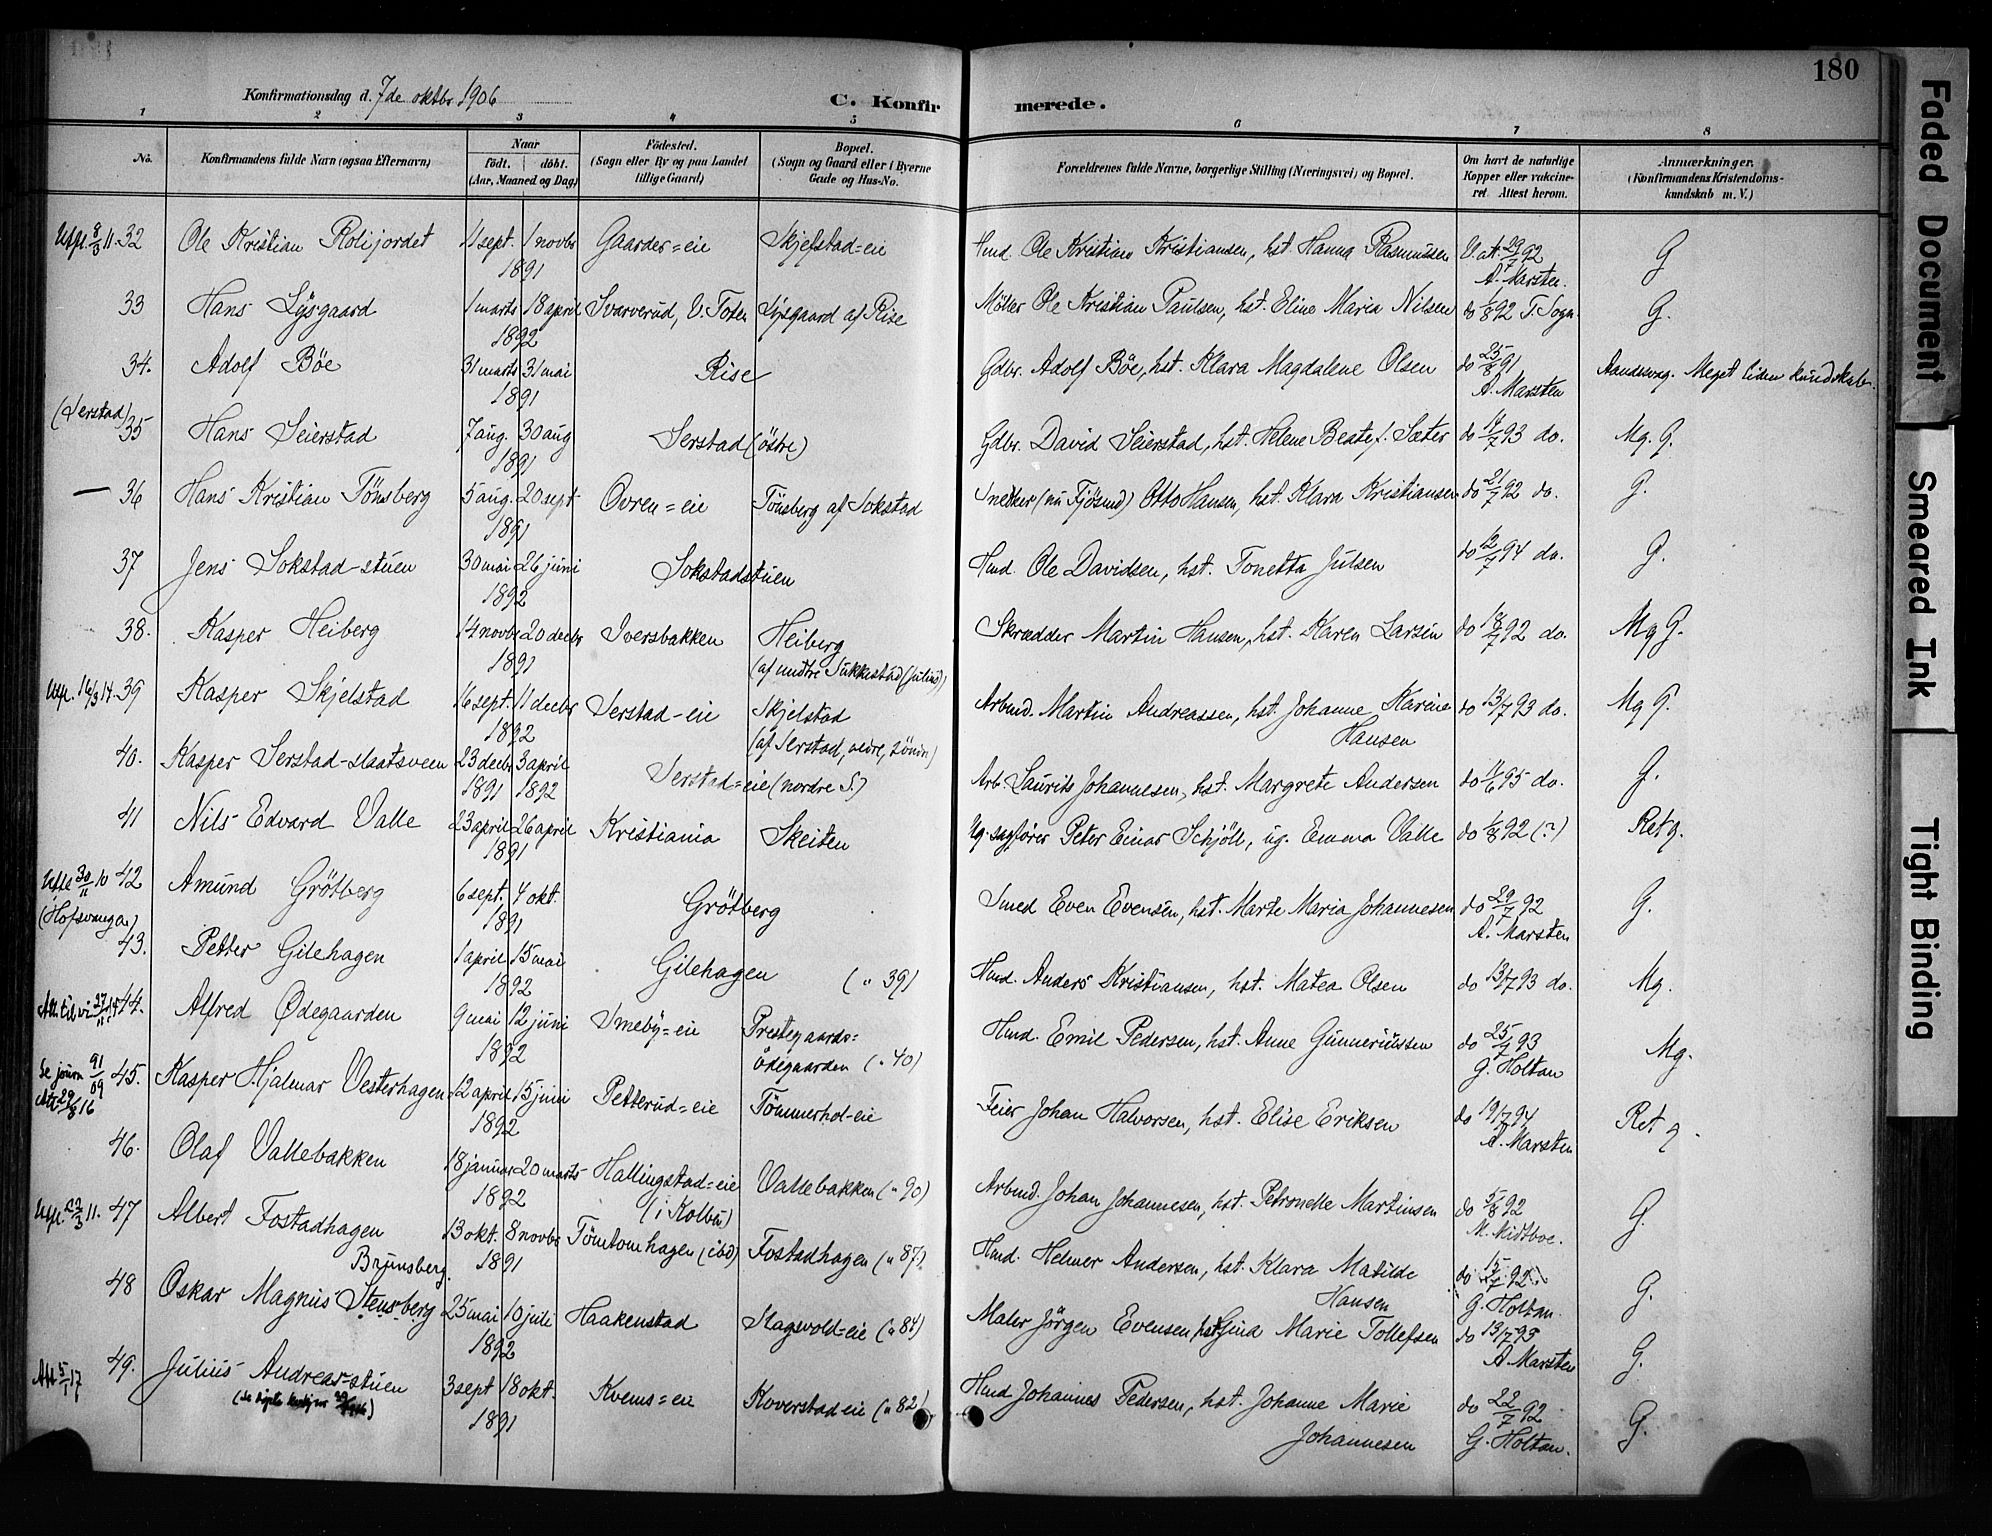 180
Konfirmationsdag d. 7de oktbr 1906
C. Konfirmerede.
1 2 3 4 5 6 7 8
No. Konfirmandens fulde Navn (ogsaa Efternavn) Naar födt. döbt. (Aar, Maaned og Dag) Födested. (Sogn eller By og paa Landet tillige Gaard) Bopæl. (Sogn og Gaard eller i Byerne Gade og Hus-No. Forældrenes fulde Navne, borgerlige Stilling (Næringsvei) og Bopæl. Om havt de naturlige Kopper eller vakcineret Attest herom. Anmærkninger. (Konfirmandens Kristendomskundskab m. V.)
Utfl. 8/3 11. 32 Ole Kristian Rolijordet 11 sept. 1 novbr Gaarder=eie Skjefstad=eie Hmd. Ole Kristian Kristiansen, hst. Hanna Rasmussen V. at. 29/7 92 G
1891 A. Marsten.
33 Hans Lÿsgaard 1 marts 18 april Svarverud, V. Toten Lÿsgaard af Rise Möller Ole Kristian Paulsen, hst. Eline Maria Nilsen do 1/8 92 T. Sogn. G.
1892
34. Adolf Böe 31 marts 31 mai Rise Gdbr. Adolf Böe, hst. Klara Magdalene Olsen do 25/8 91 Aandssvag. Meget liden kundskab.
1891 A. Marsten
(Serstad)
35 Hans Seierstad 7 aug. 30 aug Serstad (östre) Gdbr. David Seierstad, hst. Helene Beate f. Sæter do 14/7 93 do. Mg. G.
1891
— 36 Hans Kristian Tönsberg 5 aug. 20 sept Ovren=eie Tönsberg af Sokstad Snedker (nu Fjösmd) Otto Hansen, hst. Klara Kristiansen do 21/7 92 do. G.
1891
37 Jens Sokstad-stuen 30 mai 26 juni Sokstadstuen Hmd. Ole Davidsen, hst. Tonetta Julsen do 12/7 94 do. G.
1892
38. Kasper Heiberg 14 novbr 20 decbr Iversbakken Heiberg Skrædder Martin Hansen, hst. Karen Larsen do 18/7 92 do. Mg G.
1891 (af undtre Sukkestad (Julius))
Utfl. 16/3 14. 39 Kasper Skjelstad 16 sept. 11 decbr Serstad-eie Skjelstad Arbmd. Martin Andreassen, hst. Johanne Karine Hansen do 13/7 93 do. Mg G.
1892 (af Serstad, nedre, söndr.)
40. Kasper Serstad-slaatsveen 23 decbr 3 april Serstad=eie (nordre S.) Arb. Laurits Johannesen, hst. Margrete Andersen do 11/6 95 do. G.
1891 1892
41 Nils Edvard Valle 23 april 26 april Kristiania Skeiten Ug. sagförer Peter Einar Schjöll, ug. Emma Valle do 1/8 92 (?) Ret g.
1891
Utfl. 30/11 10 42 Amund Grötberg 6 sept. 4 okt. Grötberg Smed Even Evensen, hst. Marte Maria Johannesen do 29/7 92 G.
1891 A. Marsten
(Hofsvangen)
43. Petter Gilehagen 1 april 15 mai Gilehagen („ 39) Hmd. Anders Kristiansen, hst. Matea Olsen do 13/7 93 do. Mg.
1892
44. Alfred Ødegaarden 9 mai 12 juni Smebÿ=eie Prestegaards=ödegaarden („ 40) Hmd. Emil Pedersen, hst. Anne Gunneriussen do 25/7 93 Mg.
1892 G. Holtan
Se journ 91/09 45. Kasper Hjalmar Vesterhagen 12 april 15 juni Petterud=eie Tömmerhol-eie Feier Johan Halvorsen, hst. Elise Eriksen do 19/7 94 Ret g.
1892 A. Marsten
46. Olaf Vallebakken 18 januar 20 marts Hallingstad=eie (i Kolbu) Vallebakken („ 90) Arbmd. Johan Johannesen, hst. Petronelle Martinsen do 5/8 92 G.
1892 M. Midtboe.
47 Albert Fostadhagen 13 okt. 8 novbr Tömtomhagen (ibd) Fostadhagen („ 87) Hmd. Helmer Andersen, hst. Klara Matilde Hansen do 15/7 92 G.
1891 G. Holtan
Brunsberg.
48 Oskar Magnus Stensberg 25 mai 10 juli Haakenstad Skagvold=eie („ 84) Maler Jörgen Evensen, hst. Gina Marie Tollefsen do 13/7 95 G.
1892 A Marsten
Att 5/1 17 49. Julius Andreas-stuen 3 sept 18 okt. Kvems=eie Koverstad=eie („ 82) Hmd Johannes Pedersen, hst. Johanne Marie Johannesen do 22/7 92 G.
1891 G. Holtan.
Faded Document
Smeared Ink
Tight Binding